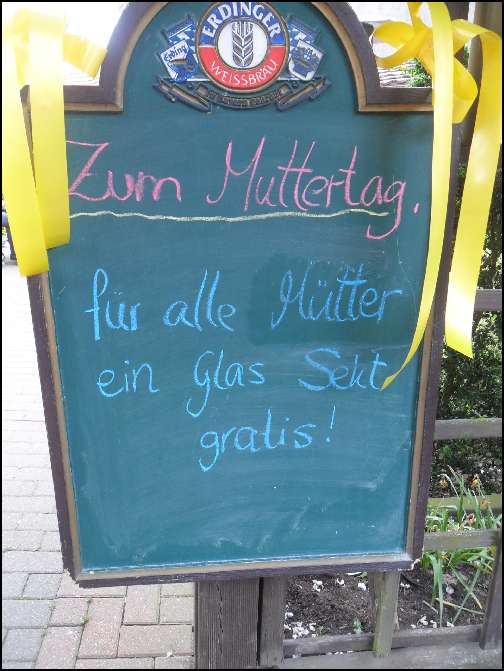 ERDINGER
WEISSBRÄU
Zum Muttertag,
für alle Mütter
ein Glas Sekt
gratis!